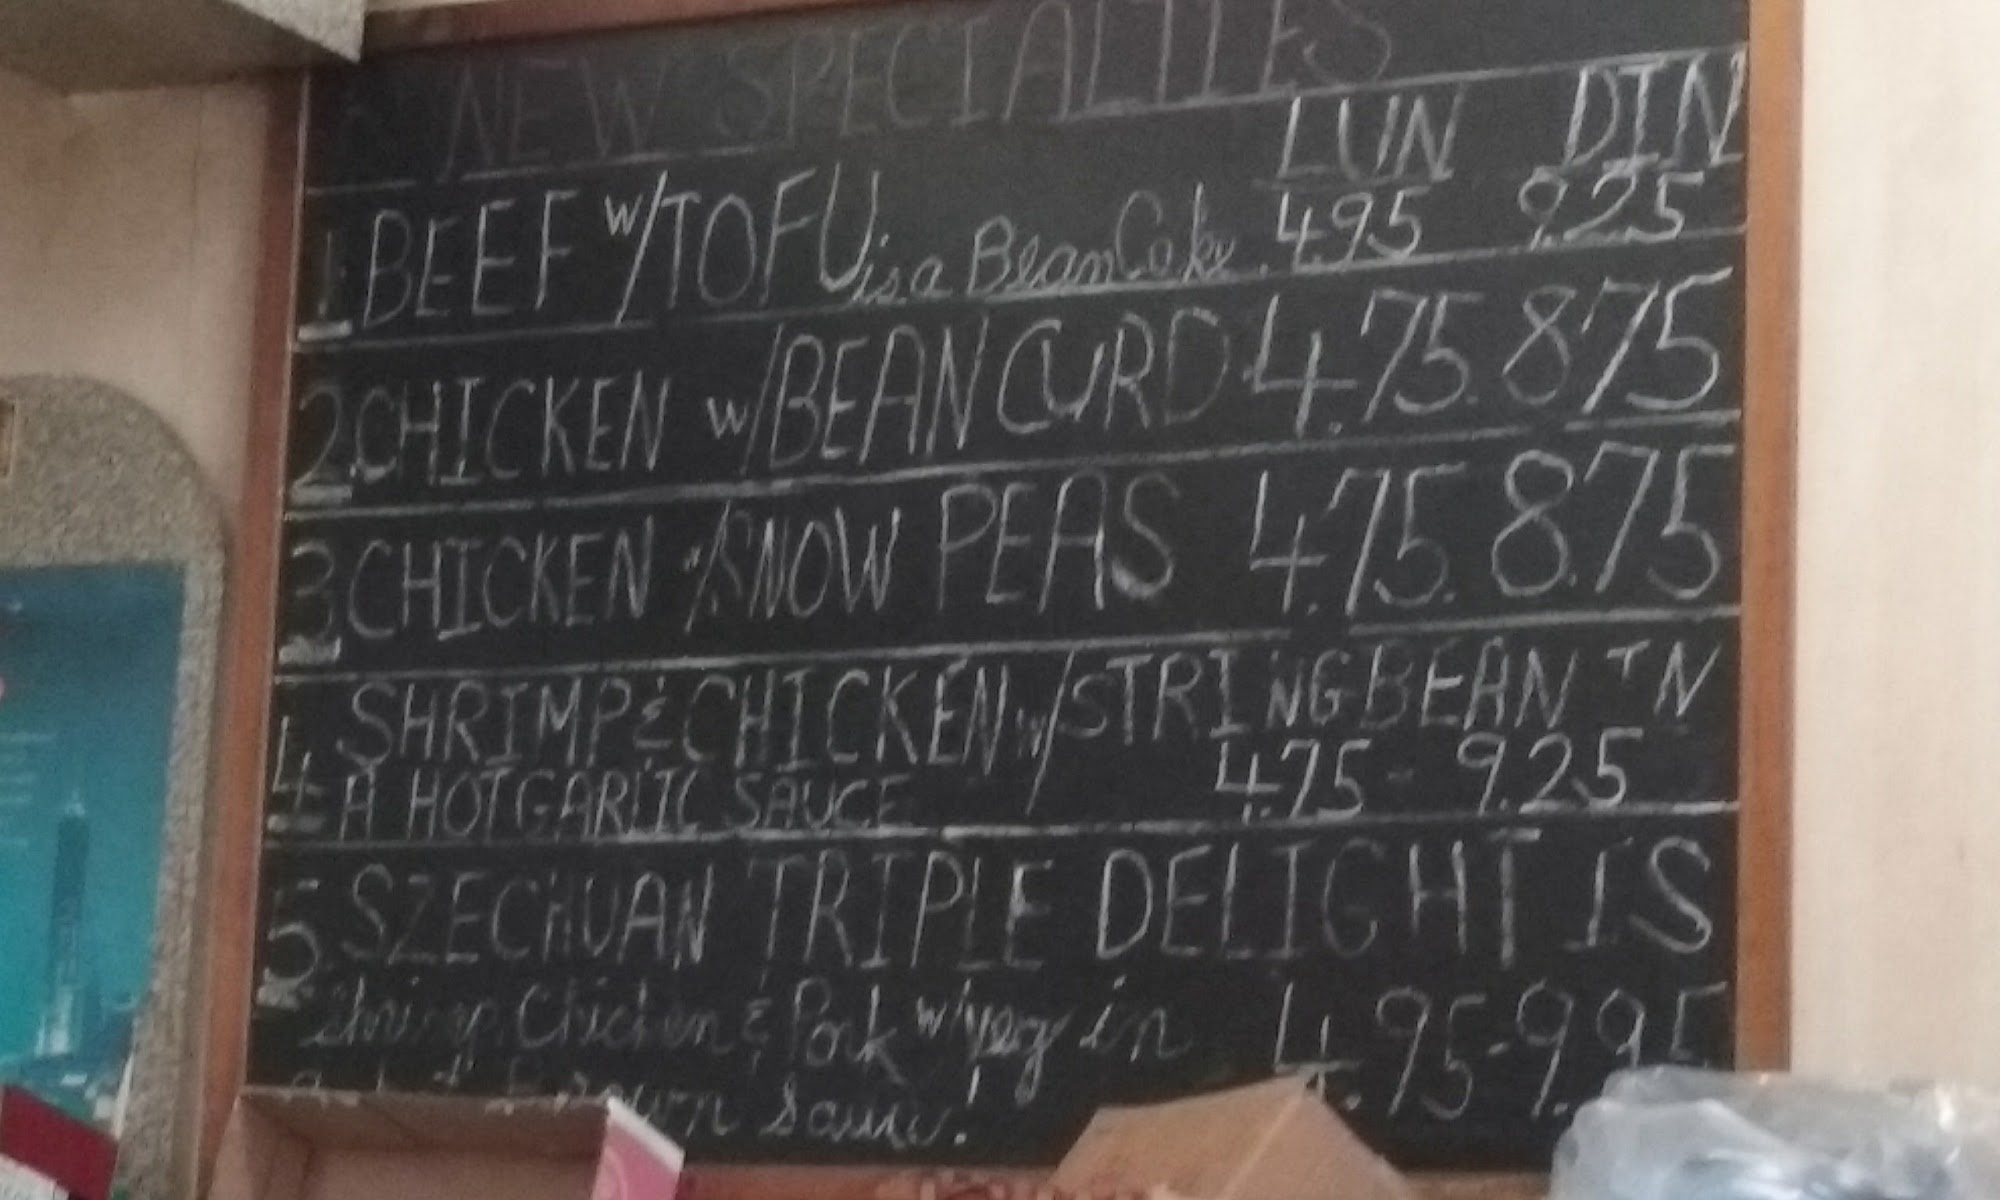 NEW SPECIALTIES
LUN DIN
1 BEEF w/TOFU is a Bean Cake. 4.95 9.25
2. CHICKEN w/BEAN CURD 4.75. 8.75
3 CHICKEN w/SNOW PEAS 4.75. 8.75
4 SHRIMP & CHICKEN w/STRING BEAN IN
A HOT GARLIC SAUCE 4.75 - 9.25
5 SZECHUAN TRIPLE DELIGHT IS
Shrimp, Chicken & Pork w/veg in 4.95-9.95
Brown Sauce.